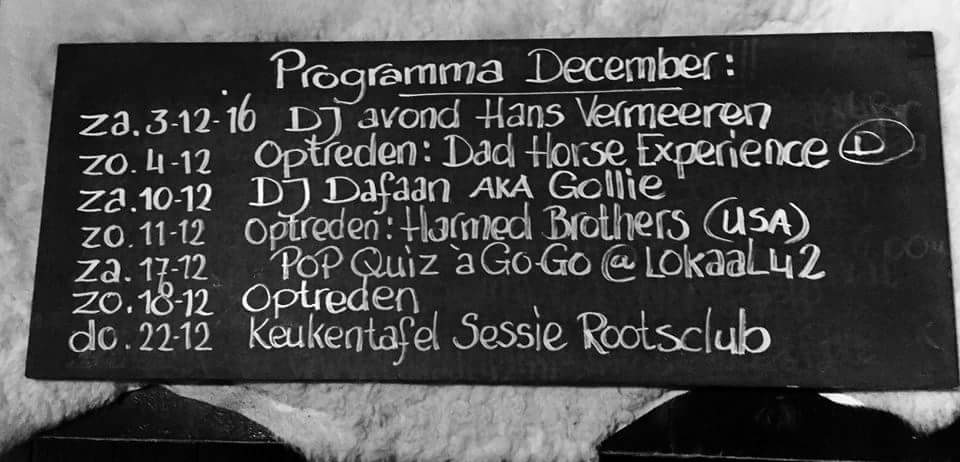 Programma December:
za. 3-12-'16 DJ avond Hans Vermeeren
zo. 4-12 Optreden: Dad Horse Experience D
za. 10-12 DJ Dafaan AKA Gollie
zo. 11-12 Optreden: Harmed Brothers (USA)
za. 17-12 POP Quiz à Go-Go @ LOKAAL42
zo. 18-12 Optreden
do. 22-12 Keukentafel Sessie Rootsclub